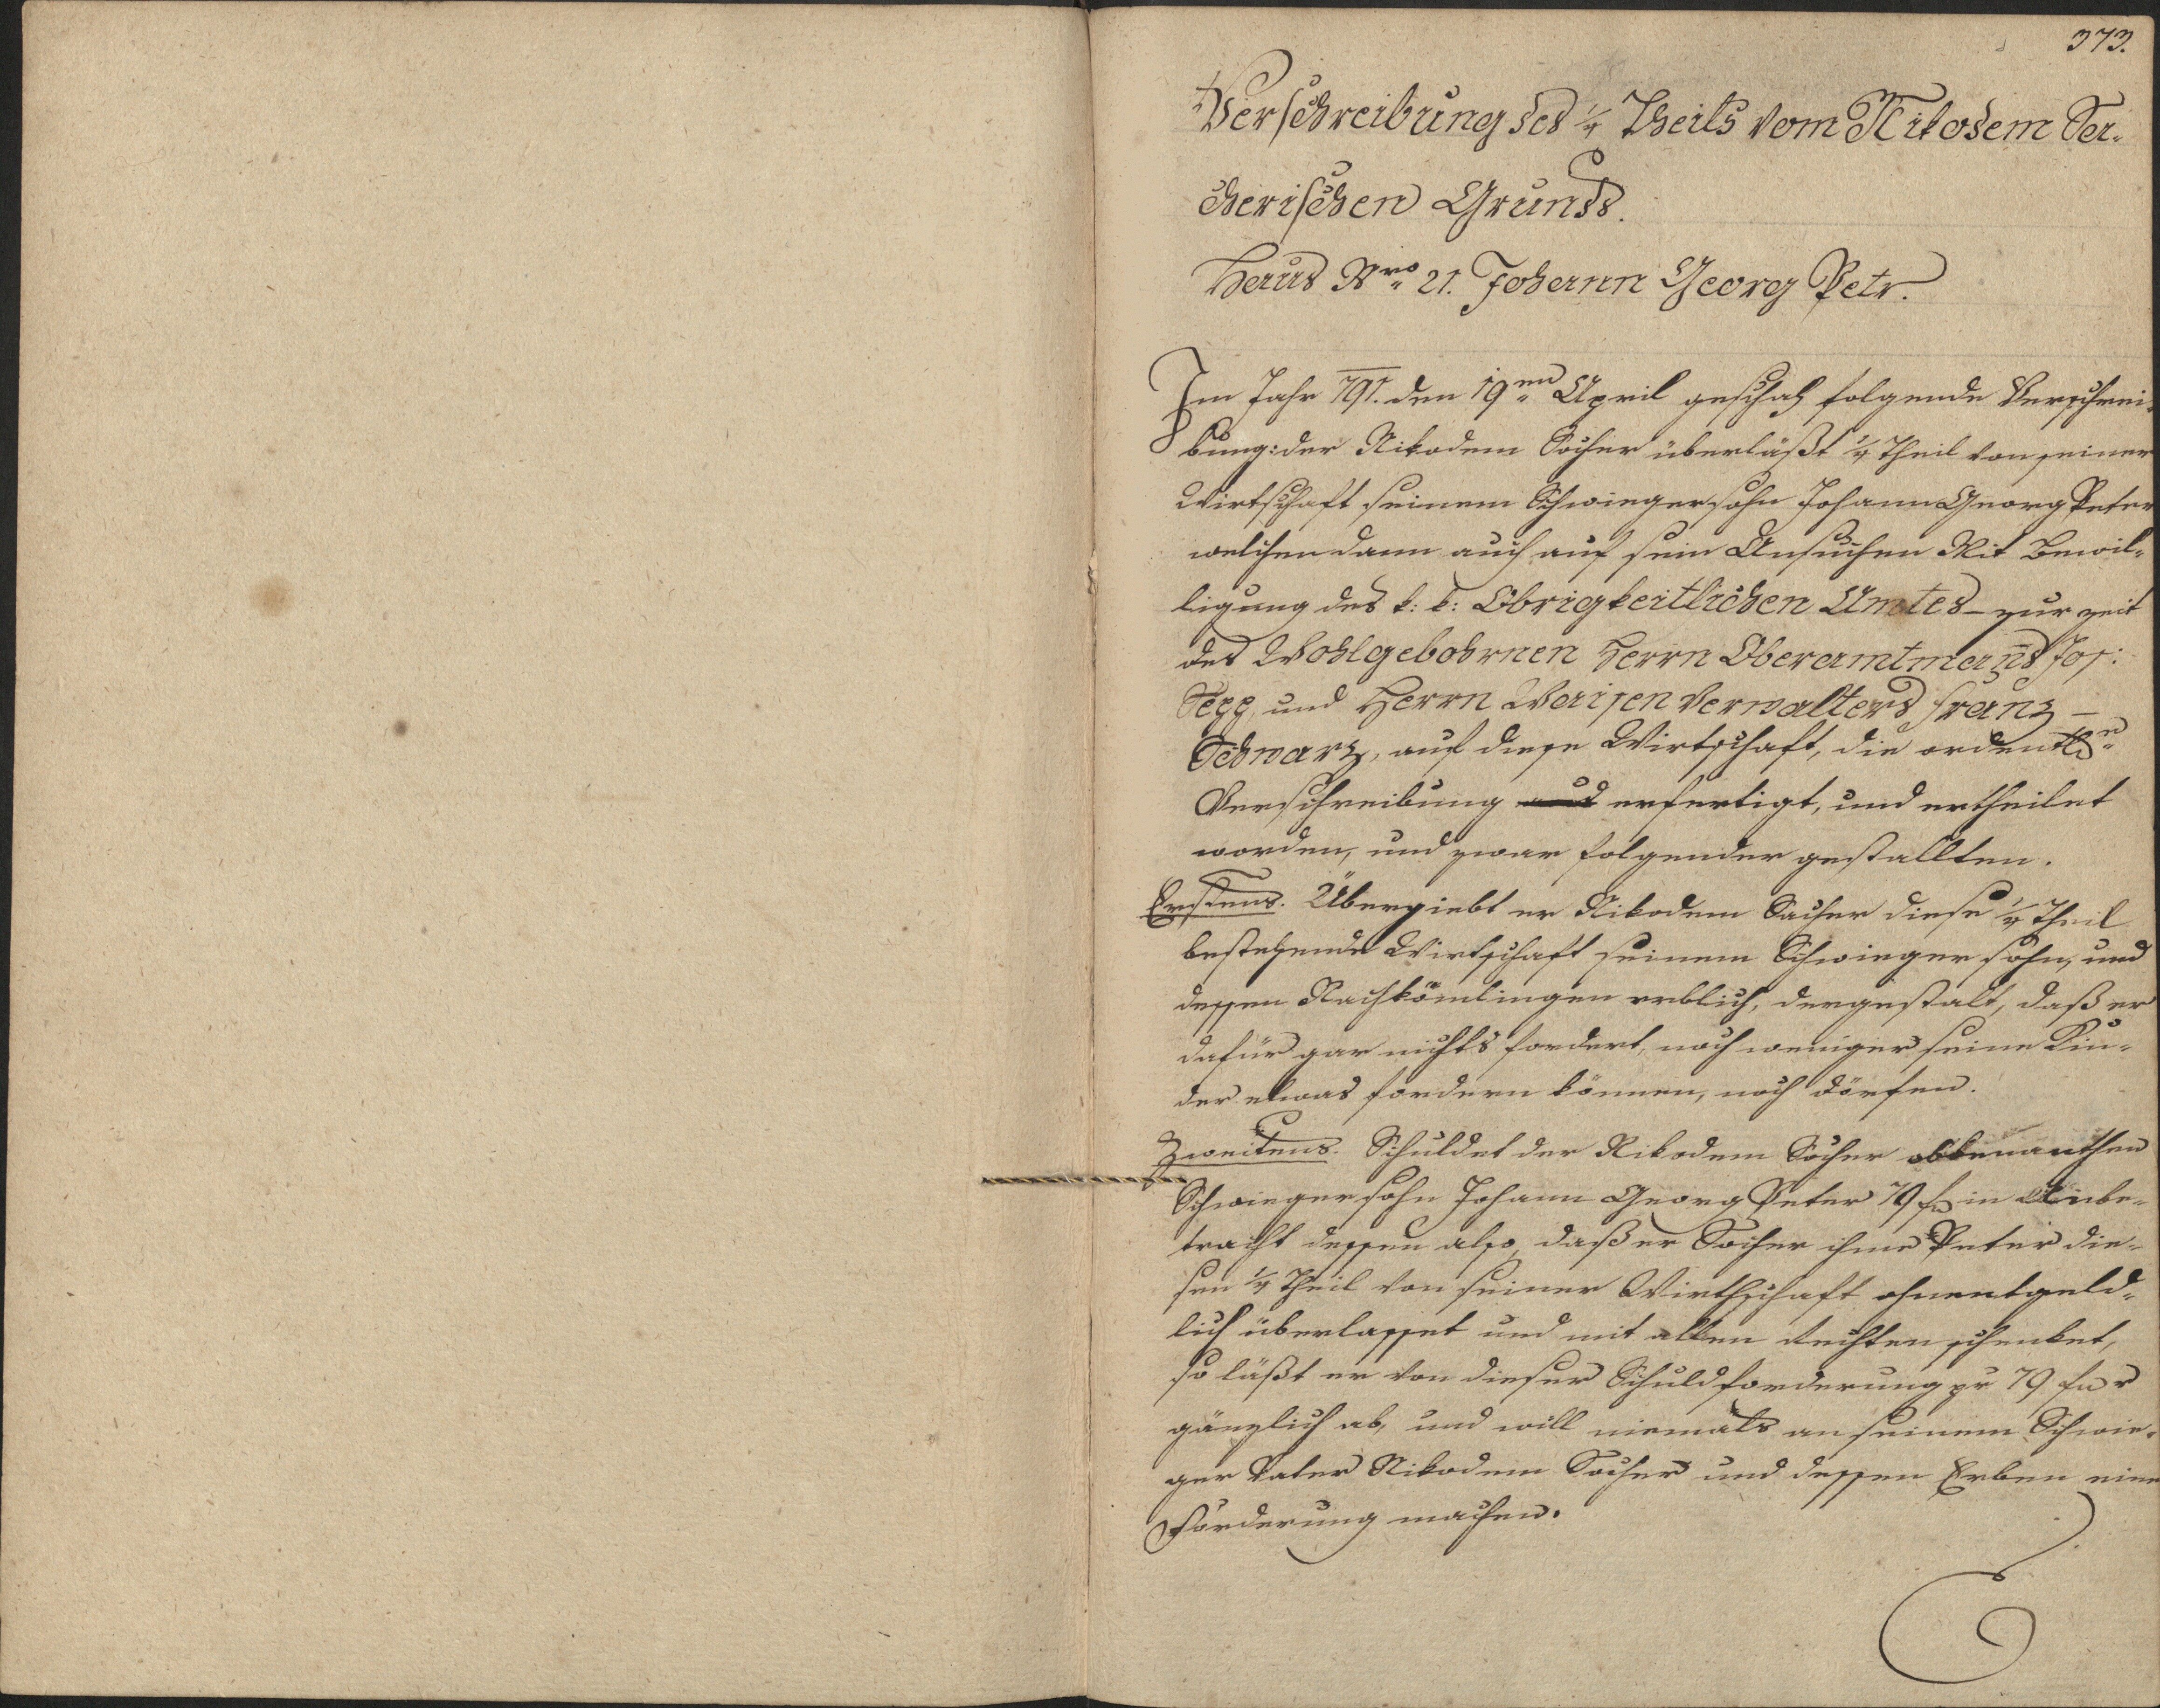 373.
Verschreibung des 1/4 Theils vom Nikodem Sa-
cherischen Grunds.
Haus Nro 21. Johann Georg Petr.
Im Jahr 791. den 19ten April geschah folgende Verschrei-
bung: der Nikodem Sacher überläßt 1/4 Theil von seiner
Wirtschaft seinem Schwiegersohn Johann Georg Peter
welchen dann auch auf sein Ansuchen Mit Bewil-
ligung des k: k: Obrigkeitlichen Amtes – zur zeit
des Wohlgebohrnen Herrn Oberamtmans Jos:
und Herrn Waisen Verwalters Franz –
Schwarz, auf diese Wirtschaft, die ordentln
Verschreibung erfertigt, und ertheilet
worden, und zwar folgender gestallten.
Erstens. Übergiebt er Nikodem Sacher diese 1/4 Theil
bestehende Wirtschaft seinem Schwieger sohn, und
dessen Nachkömlingen erblich, dergestalt, daß er
dafür gar nichts fordert, noch weniger seine Kin-
der etwas fordern können, noch dörfen.
Zweitens. Schuldet der Nikodem Sacher obbenanthen
Schwieger sohn Johann Georg Peter 79 f in Anbe-
tracht dessen also, daß er Sacher ihme Peter die-
sen 1/4 Theil von seiner Wirthschaft ohnentgeld-
lich überlasset und mit allen Rechten schenket,
so läßt er von dieser Schuldforderung pr 79 f
gänzlich ab, und will niemals an seinem Schwie-
ger Vater Nikodem Sacher und dessen Erben eine
Forderung machen.